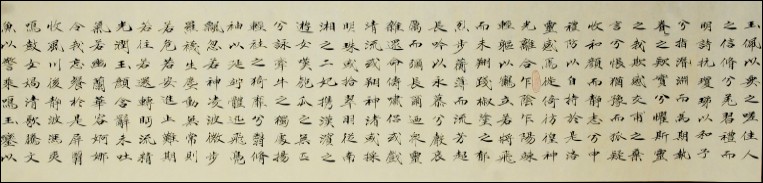 玉佩以要之嗟佳人
之信脩兮羌習禮而
明詩抗瓊珶以和予
兮指潛淵而爲期執
眷眷之欵實兮懼斯靈
之我欺感交甫之棄
言兮悵猶豫而狐疑
收和顔而靜志兮申
禮防以自持於是洛
靈感焉徙倚彷徨神
光離合乍陰乍陽竦
輕軀以鶴立若將飛
而未翔踐椒塗之郁
烈步蘅薄而流芳超
長吟以永慕兮聲哀
厲而彌長爾迺衆靈
雜遝命儔嘯侶或戲
清流或翔神渚或採
明珠或拾翠羽從南
湘之二妃攜漢濱之
遊女歎匏瓜之無匹
兮詠牽牛之獨處揚
輕袿之猗靡兮翳脩
袖以延佇體迅飛鳧
飄忽若神凌波微步
羅襪生塵動無常則
若危若安進止難期
若往若還轉眄流精
光潤玉顏含辭未吐
氣若幽蘭華容婀娜
令我忘餐於是屏翳
收風川后靜波馮夷
鳴鼓女媧清歌騰文
魚以警乘鳴玉鑾以